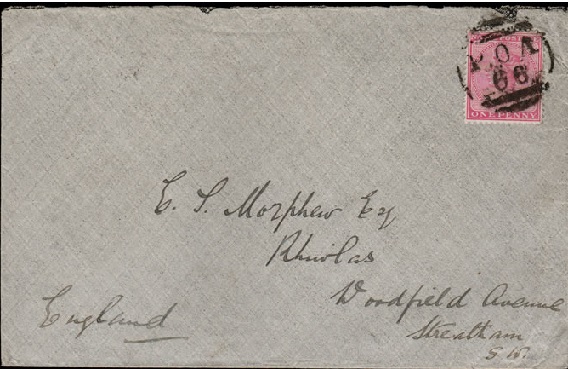 P.O.A
66
ONE PENNY
E. S. Morphew Esq
Rhiwlas
Woodfield Avenue
Streatham
S.W.
England